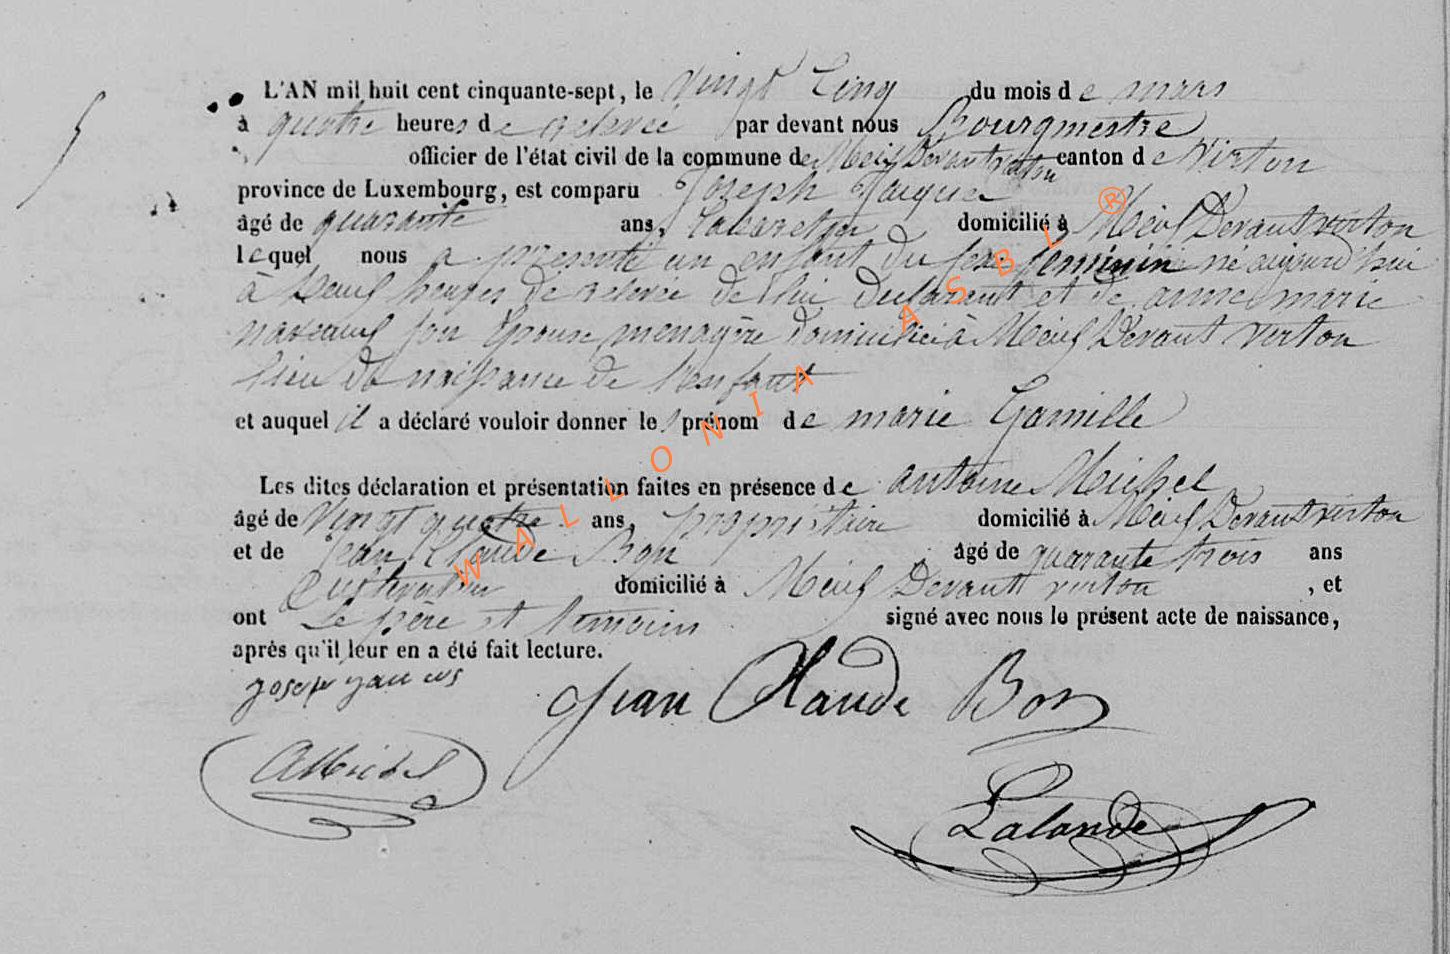 L'AN mil huit cent cinquante-sept, le vingt Cinq du mois de mars
à quatre heures de relevée par devant nous Bourgmestre
officier de l'état civil de la commune de Meix Devant virton canton de Virton
province de Luxembourg, est comparu Joseph Jacques
âgé de quarante ans, Cabaretier domicilié à Meix Devant virton
lequel nous a presenté un enfant du sexe feminin né aujourd'hui
à heures de relevée de lui declarant et de anne marie
son Epouse, menagère domiciliée à Meix Devant virton
lieu de naissance de l'enfant
et auquel il a déclaré vouloir donner les prénom de marie Camille
Les dites déclaration et présentation faites en présence de antoine Michel
âgé de Vingt quatre ans, propriétaire domicilié à Meix Devant virton
et de Jean Claude Bon âgé de quarante trois ans
Cultivateur domicilié à Meix Devant virton , et
ont Le père et témoins signé avec nous le présent acte de naissance,
après qu'il leur en a été fait lecture.
Jean Claude Bon
AMichel
Lalande
WALLONIA ASBL ®